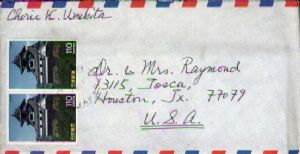 Cherie K. Umekita
110
110
Dr. & Mrs. Raymond
13115, Tosca,
Houston, Tx. 77079
U.S.A.